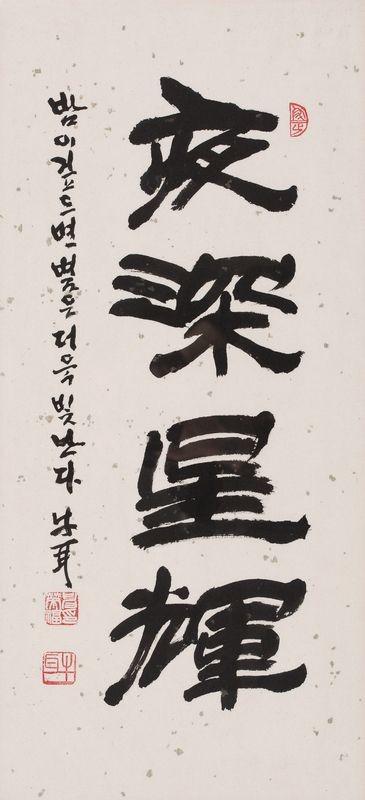 夜深星輝
밤이 깊으면 별은 더욱 빛난다 牛耳